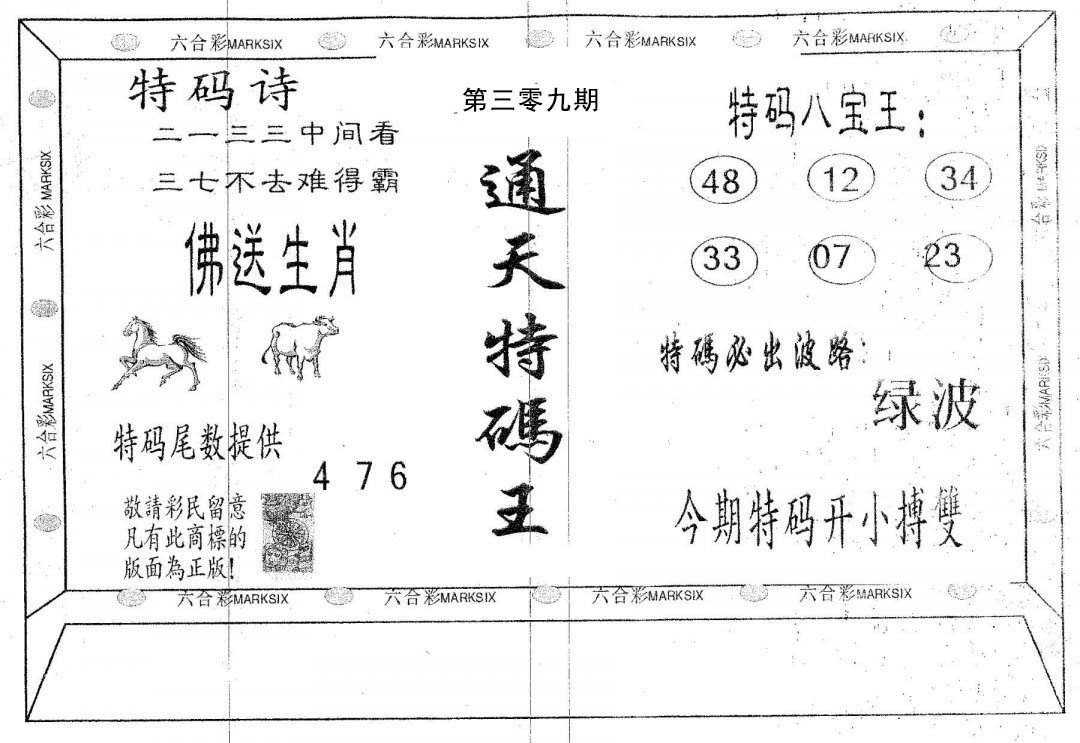 六合彩MARKSIX 六合彩MARKSIX 六合彩MARKSIX 六合彩MARKSIX
特码诗
二一三三中间看
三七不去难得霸
佛送生肖
特码尾数提供
4 7 6
敬請彩民留意
凡有此商標的
版面為正版!
第三零九期
通天特碼王
特码八宝王:
48 12 34
33 07 23
特碼必出波路:
绿波
今期特码开小搏雙
六合彩MARKSIX
六合彩MARKSIX
六合彩MARKSIX
六合彩MARKSIX
六合彩MARKSIX 六合彩MARKSIX 六合彩MARKSIX 六合彩MARKSIX